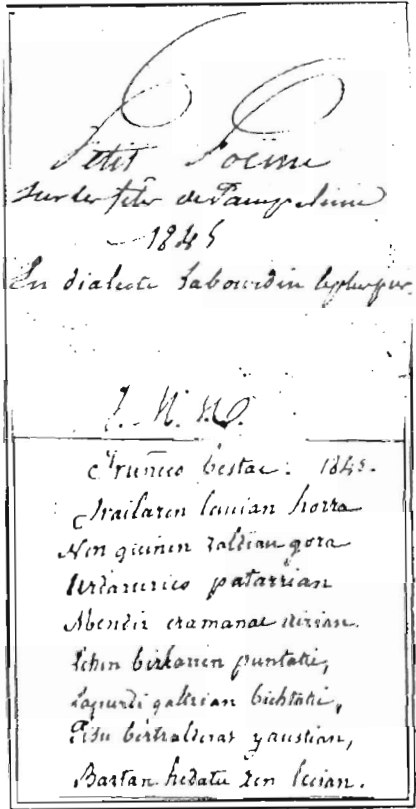 Petit Poëme
sur les fêtes de Pampelune
1845
En dialecte Labourdin le plus pur.
Iruñeco bestac. 1845.
Irailaren lauian horra
Nun guinen zaldian gora
patarrian
Mendiz eramanac airian.
Ichin birkarien puntatic,
Lapurdi galtzian bichtatic,
Baztan hedatu zen